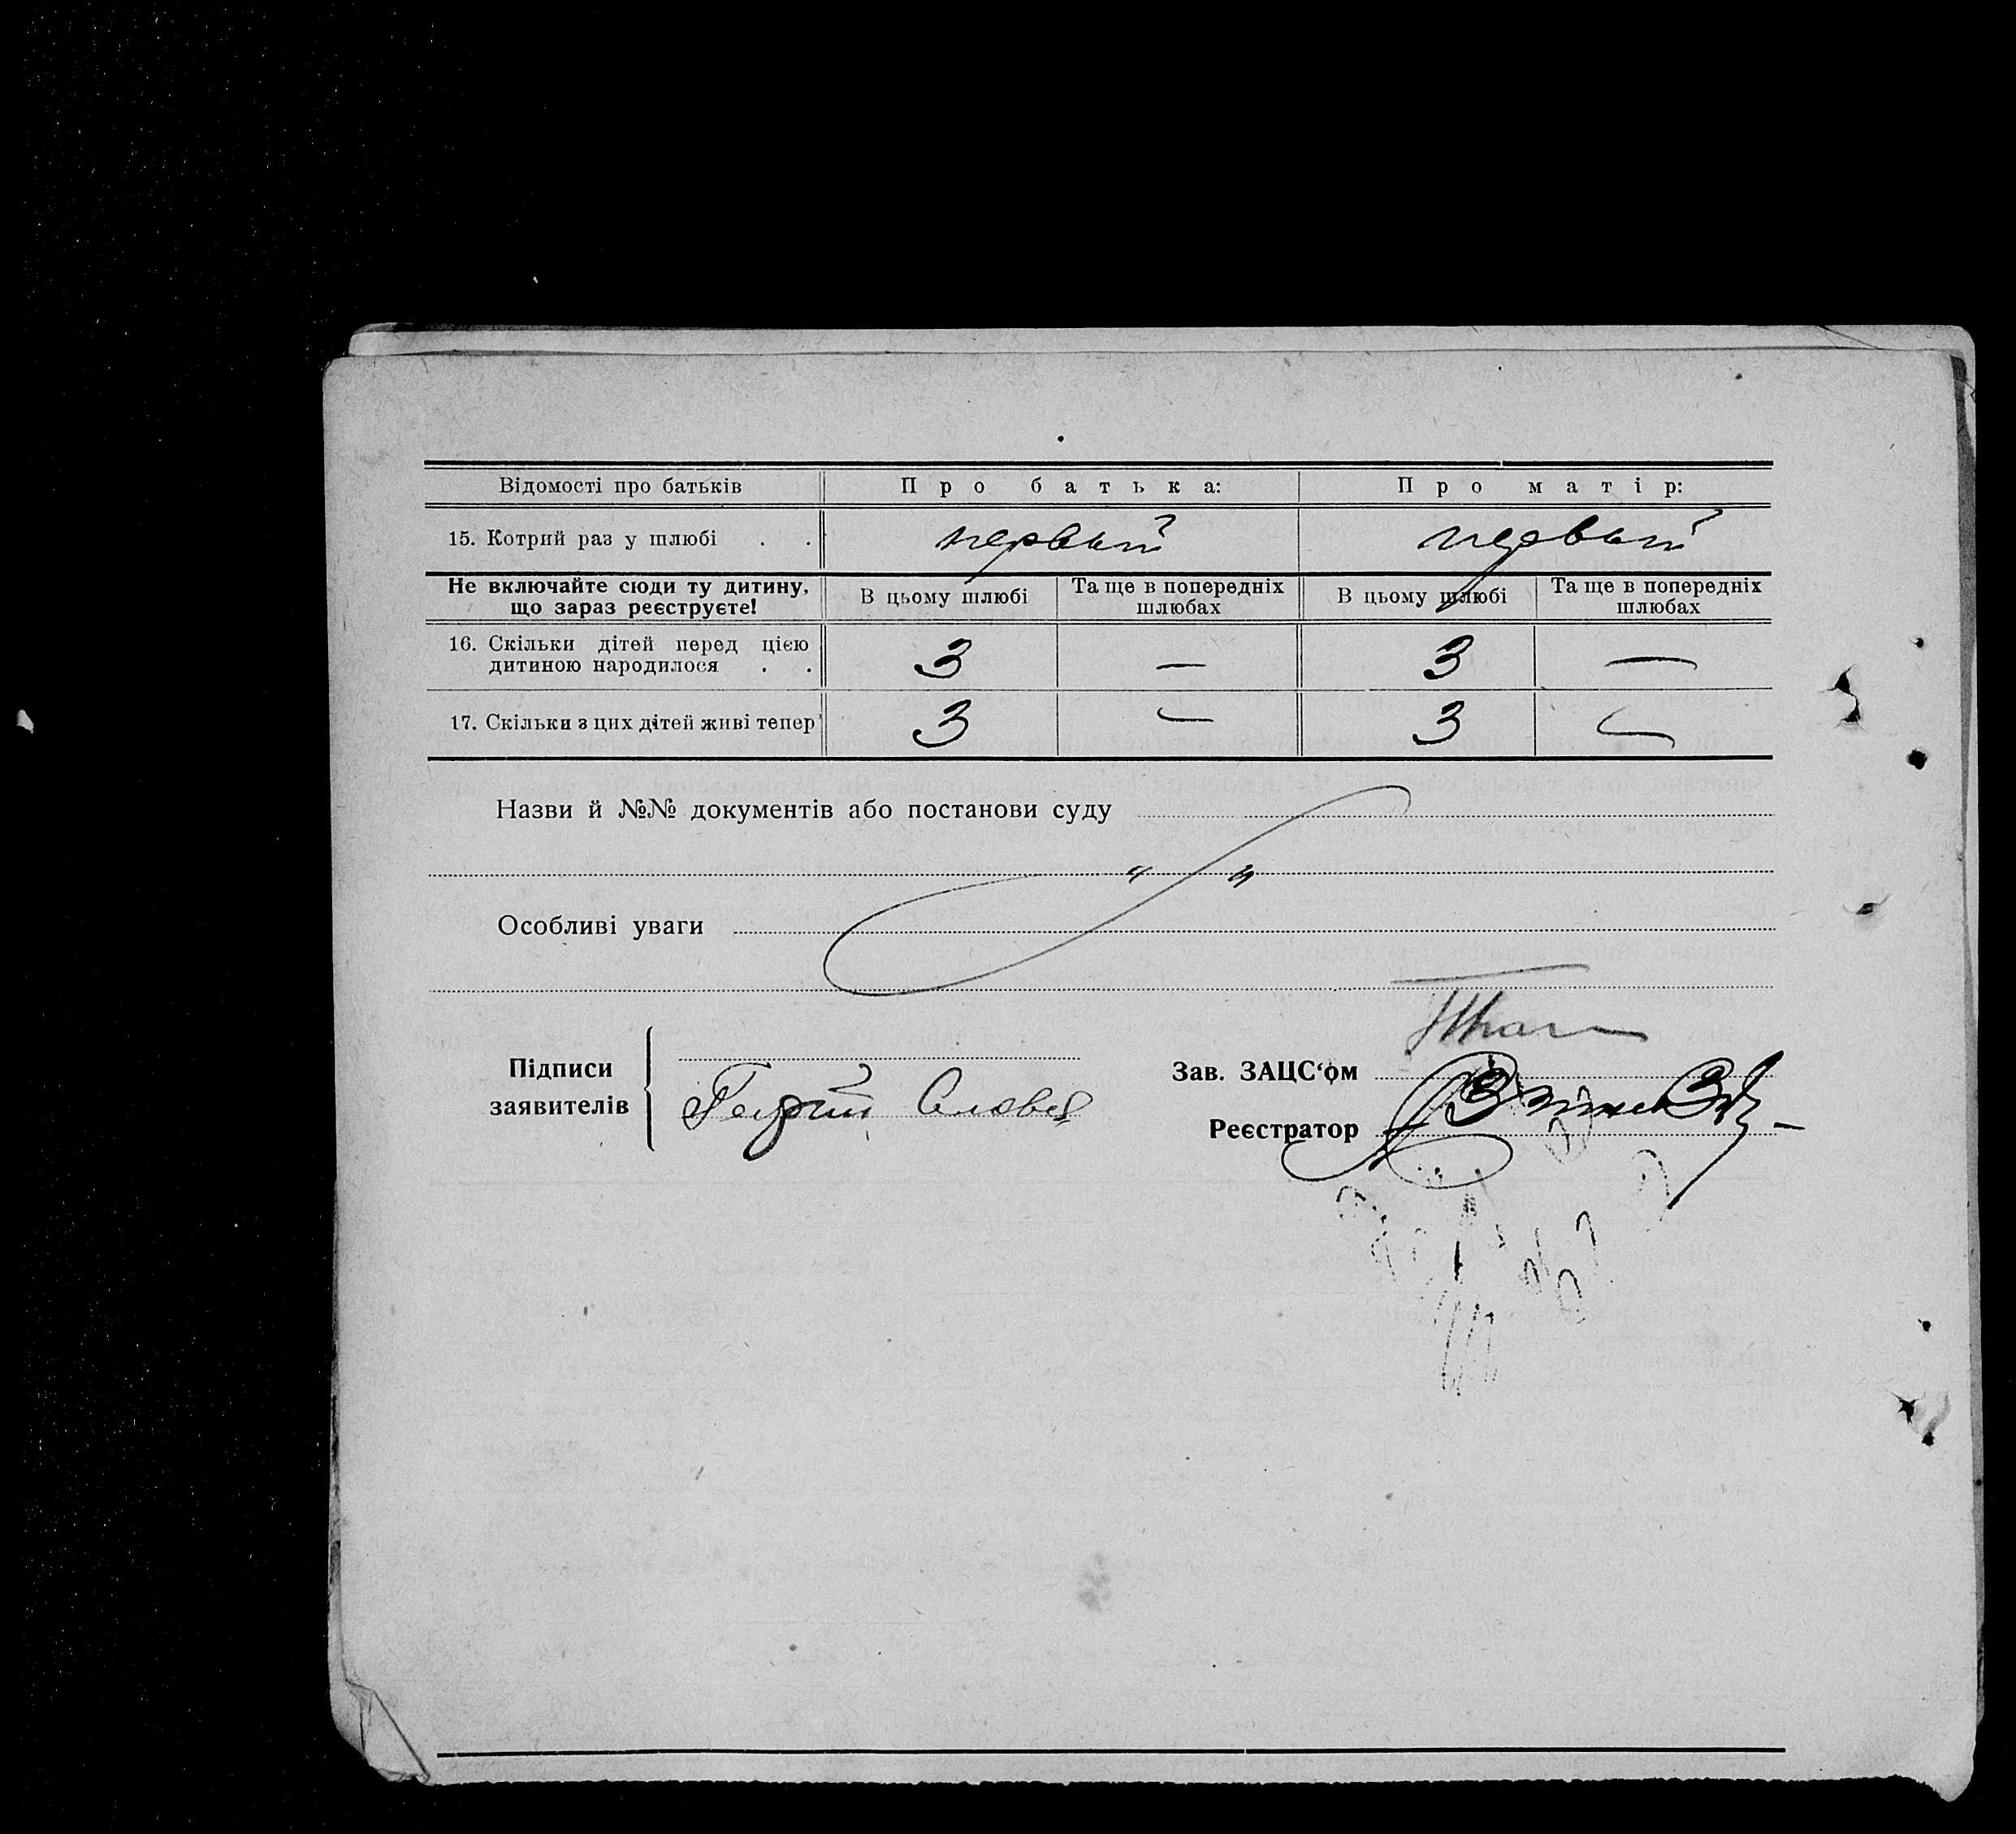 Відомості про батьків Про батька: Про матір:
15. Котрий раз у шлюбі . . первый первый
Не включайте сюди ту дитину, що зараз реєструєте! В цьому шлюбі Та ще в попередніх шлюбах В цьому шлюбі Та ще в попередніх шлюбах
16. Скільки дітей перед цією
дитиною народилося . . 3 — 3 —
17. Скільки з цих дітей живі тепер 3 — 3 —
Назви й №№ документів або постанови суду
" "
Особливі уваги
Підписи заявителів
Зав. ЗАЦС‘ом
Реєстратор